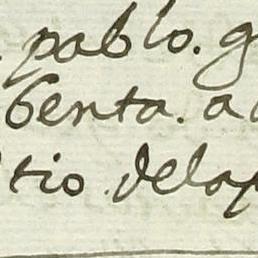 . pablo. g
benta. a
tio delap